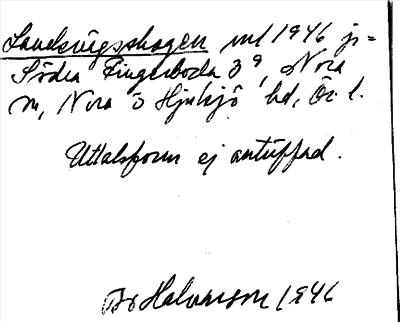 Landsvägsskogen ml 1946 js=
Södra Fingerboda 3⁹, Nora
sn, Nora o Hjulsjö hd, Ör l.
Uttalsform ej antäffad.
Br Halvarson 1946